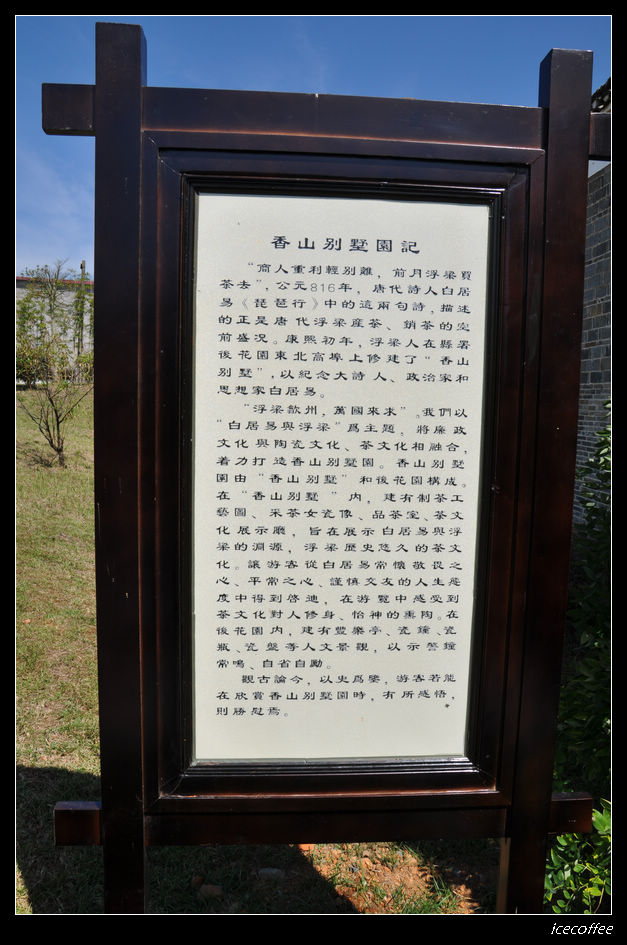 香山别墅園記
“商人重利輕别離，前月浮梁買
茶去”，公元816年，唐代詩人白居
易《琵琶行》中的這兩句詩，描述
的正是唐代浮梁産茶、銷茶的空
前盛况。康熙初年，浮梁人在縣署
後花園東北高埠上修建了“香山
别墅”，以紀念大詩人、政治家和
思想家白居易。
“浮梁歙州，萬國來求”。我們以
“白居易與浮梁”爲主題，將廉政
文化與陶瓷文化、茶文化相融合，
着力打造香山别墅園。香山别墅
園由“香山别墅”和後花園構成。
在“香山别墅”内，建有制茶工
藝園、采茶女瓷像、品茶室、茶文
化展示廳，旨在展示白居易與浮
梁的淵源，浮梁歷史悠久的茶文
化。讓游客從白居易常懷敬畏之
心、平常之心、謹慎交友的人生態
度中得到啓迪，在游覽中感受到
茶文化對人修身、怡神的熏陶。在
後花園内，建有豐樂亭、瓷鐘、瓷
瓶、瓷盤等人文景觀，以示警鐘
常鳴、自省自勵。
觀古論今，以史爲鑒，游客若能
在欣賞香山别墅園時，有所感悟，
則勝慰焉。
icecoffee